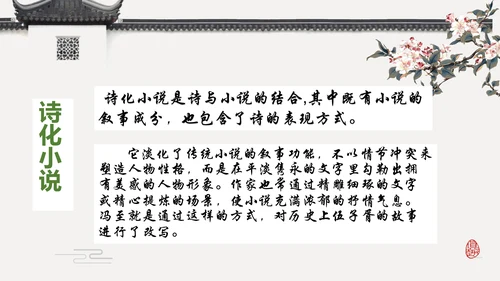 诗化小说
诗化小说是诗与小说的结合,其中既有小说的
叙事成分，也包含了诗的表现方式。
它淡化了传统小说的叙事功能，不以情节冲突来
塑造人物性格，而是在平淡隽永的文字里勾勒出拥
有美感的人物形象。作家也常通过精雕细琢的文字
或精心提炼的场景，使小说充满浓郁的抒情气息。
冯至就是通过这样的方式，对历史上伍子胥的故事
进行了改写。